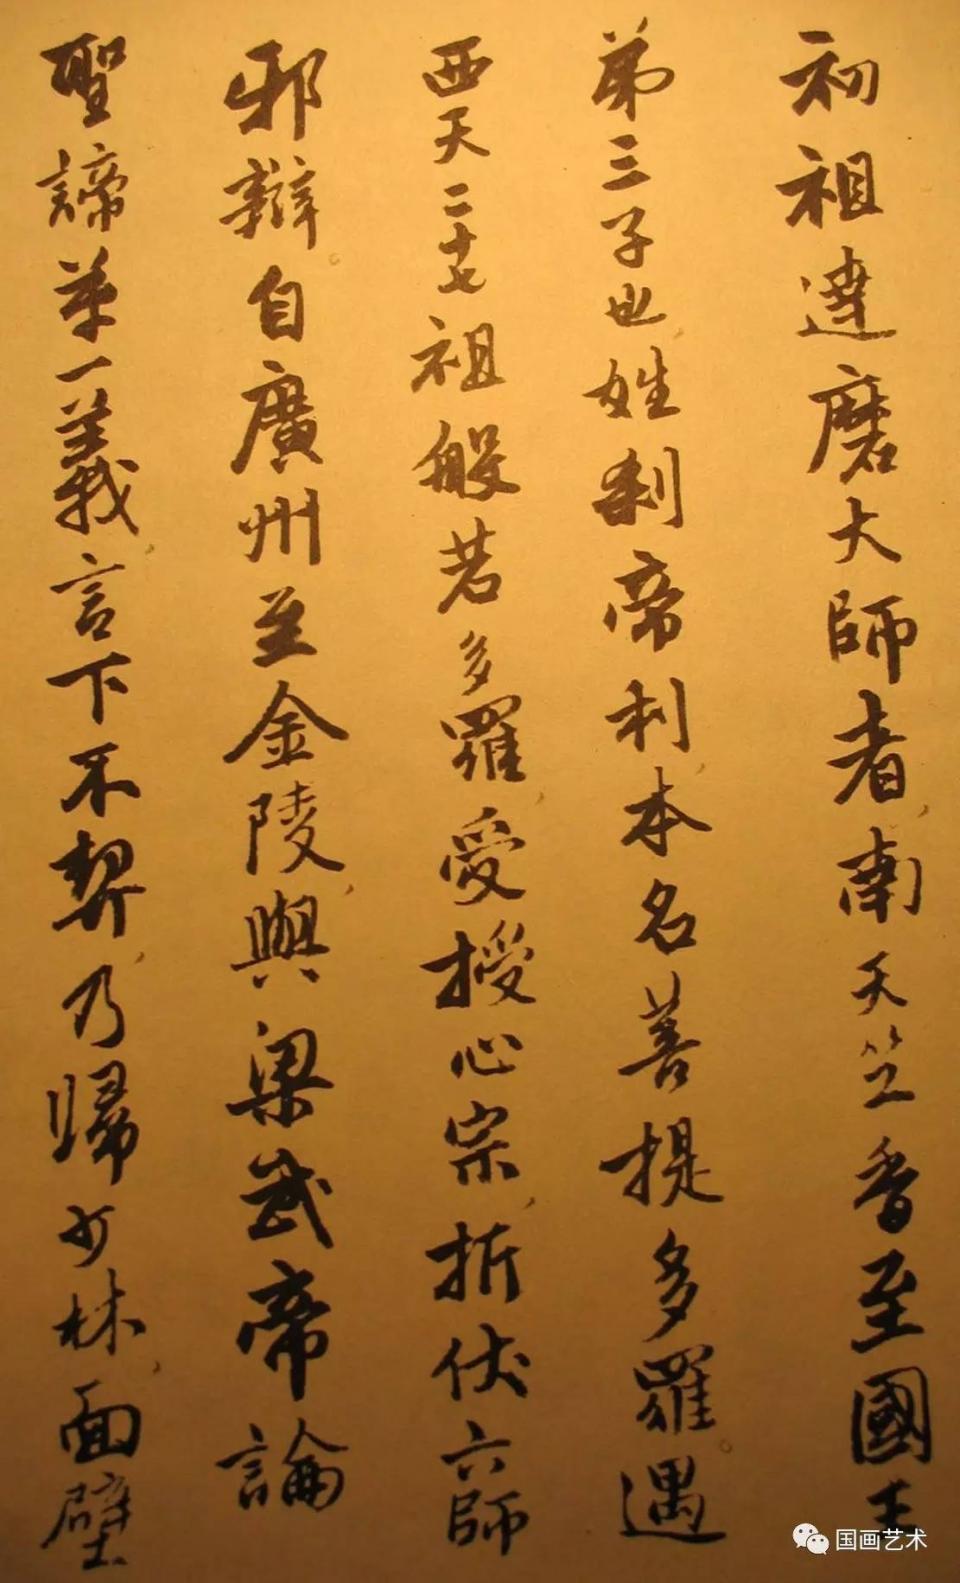 初祖達磨大師者南天竺香至國王
弟三子也姓刹帝利本名菩提多羅遇
西天二十七祖般若多羅受授心宗折伏六師
邪辯自廣州至金陵與梁武帝論
聖諦苐一義言下不契乃歸少林面壁
国画艺术